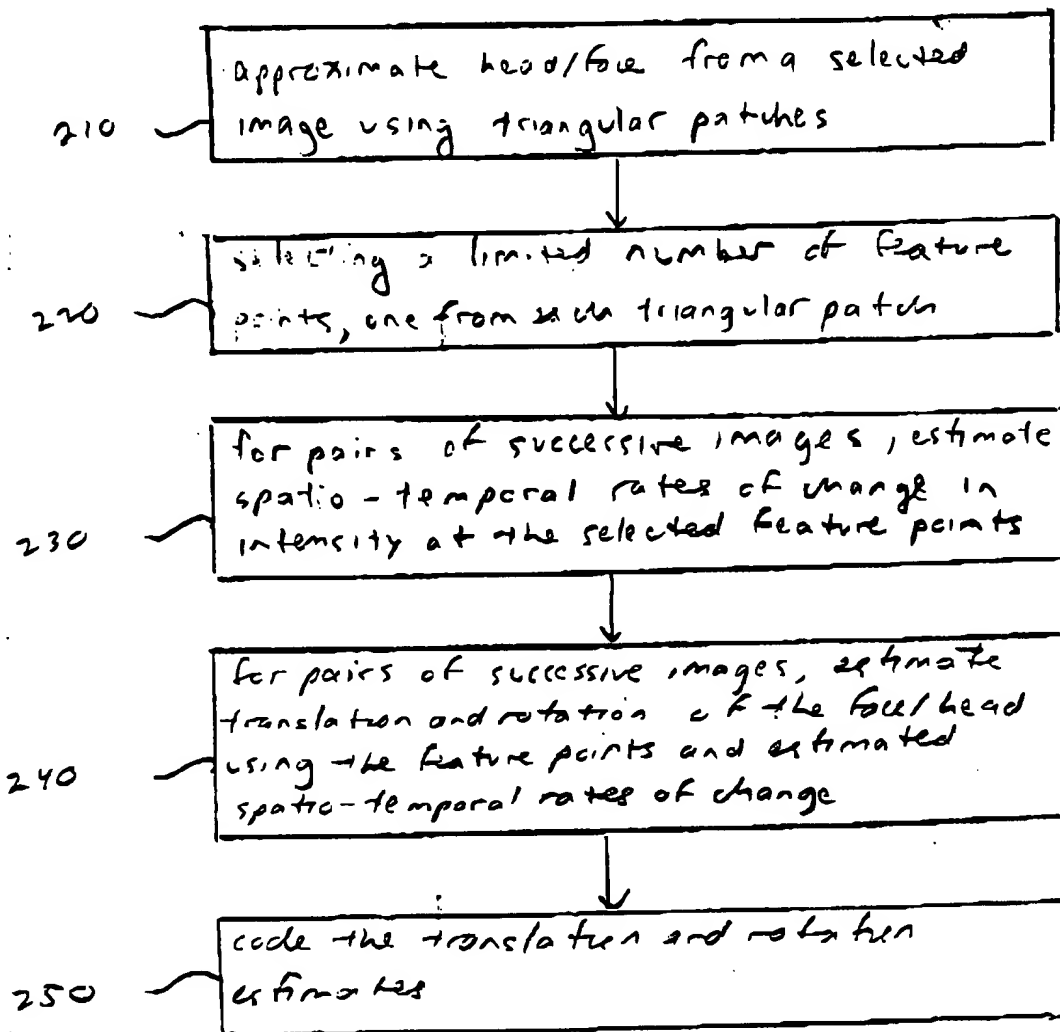 approximate head/face from a selected
image using triangular patches
210
selecting a limited number of feature
points, one from each triangular patch
220
for pairs of successive images, estimate
spatio-temporal rates of change in
intensity at the selected feature points
230
for pairs of successive images, estimate
translation and rotation of the face/head
using the feature points and estimated
spatio-temporal rates of change
240
code the translation and rotation
estimates
250